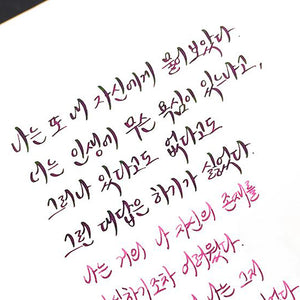 나는 또 내 자신에게 물어보았다.
너는 인생에 무슨 욕심이 있느냐고,
그러나 있다고도 없다고도
그런 대답은 하기가 싫었다.
나는 거의 나 자신의 존재를
인식하기조차 어려웠다.
나는 그제